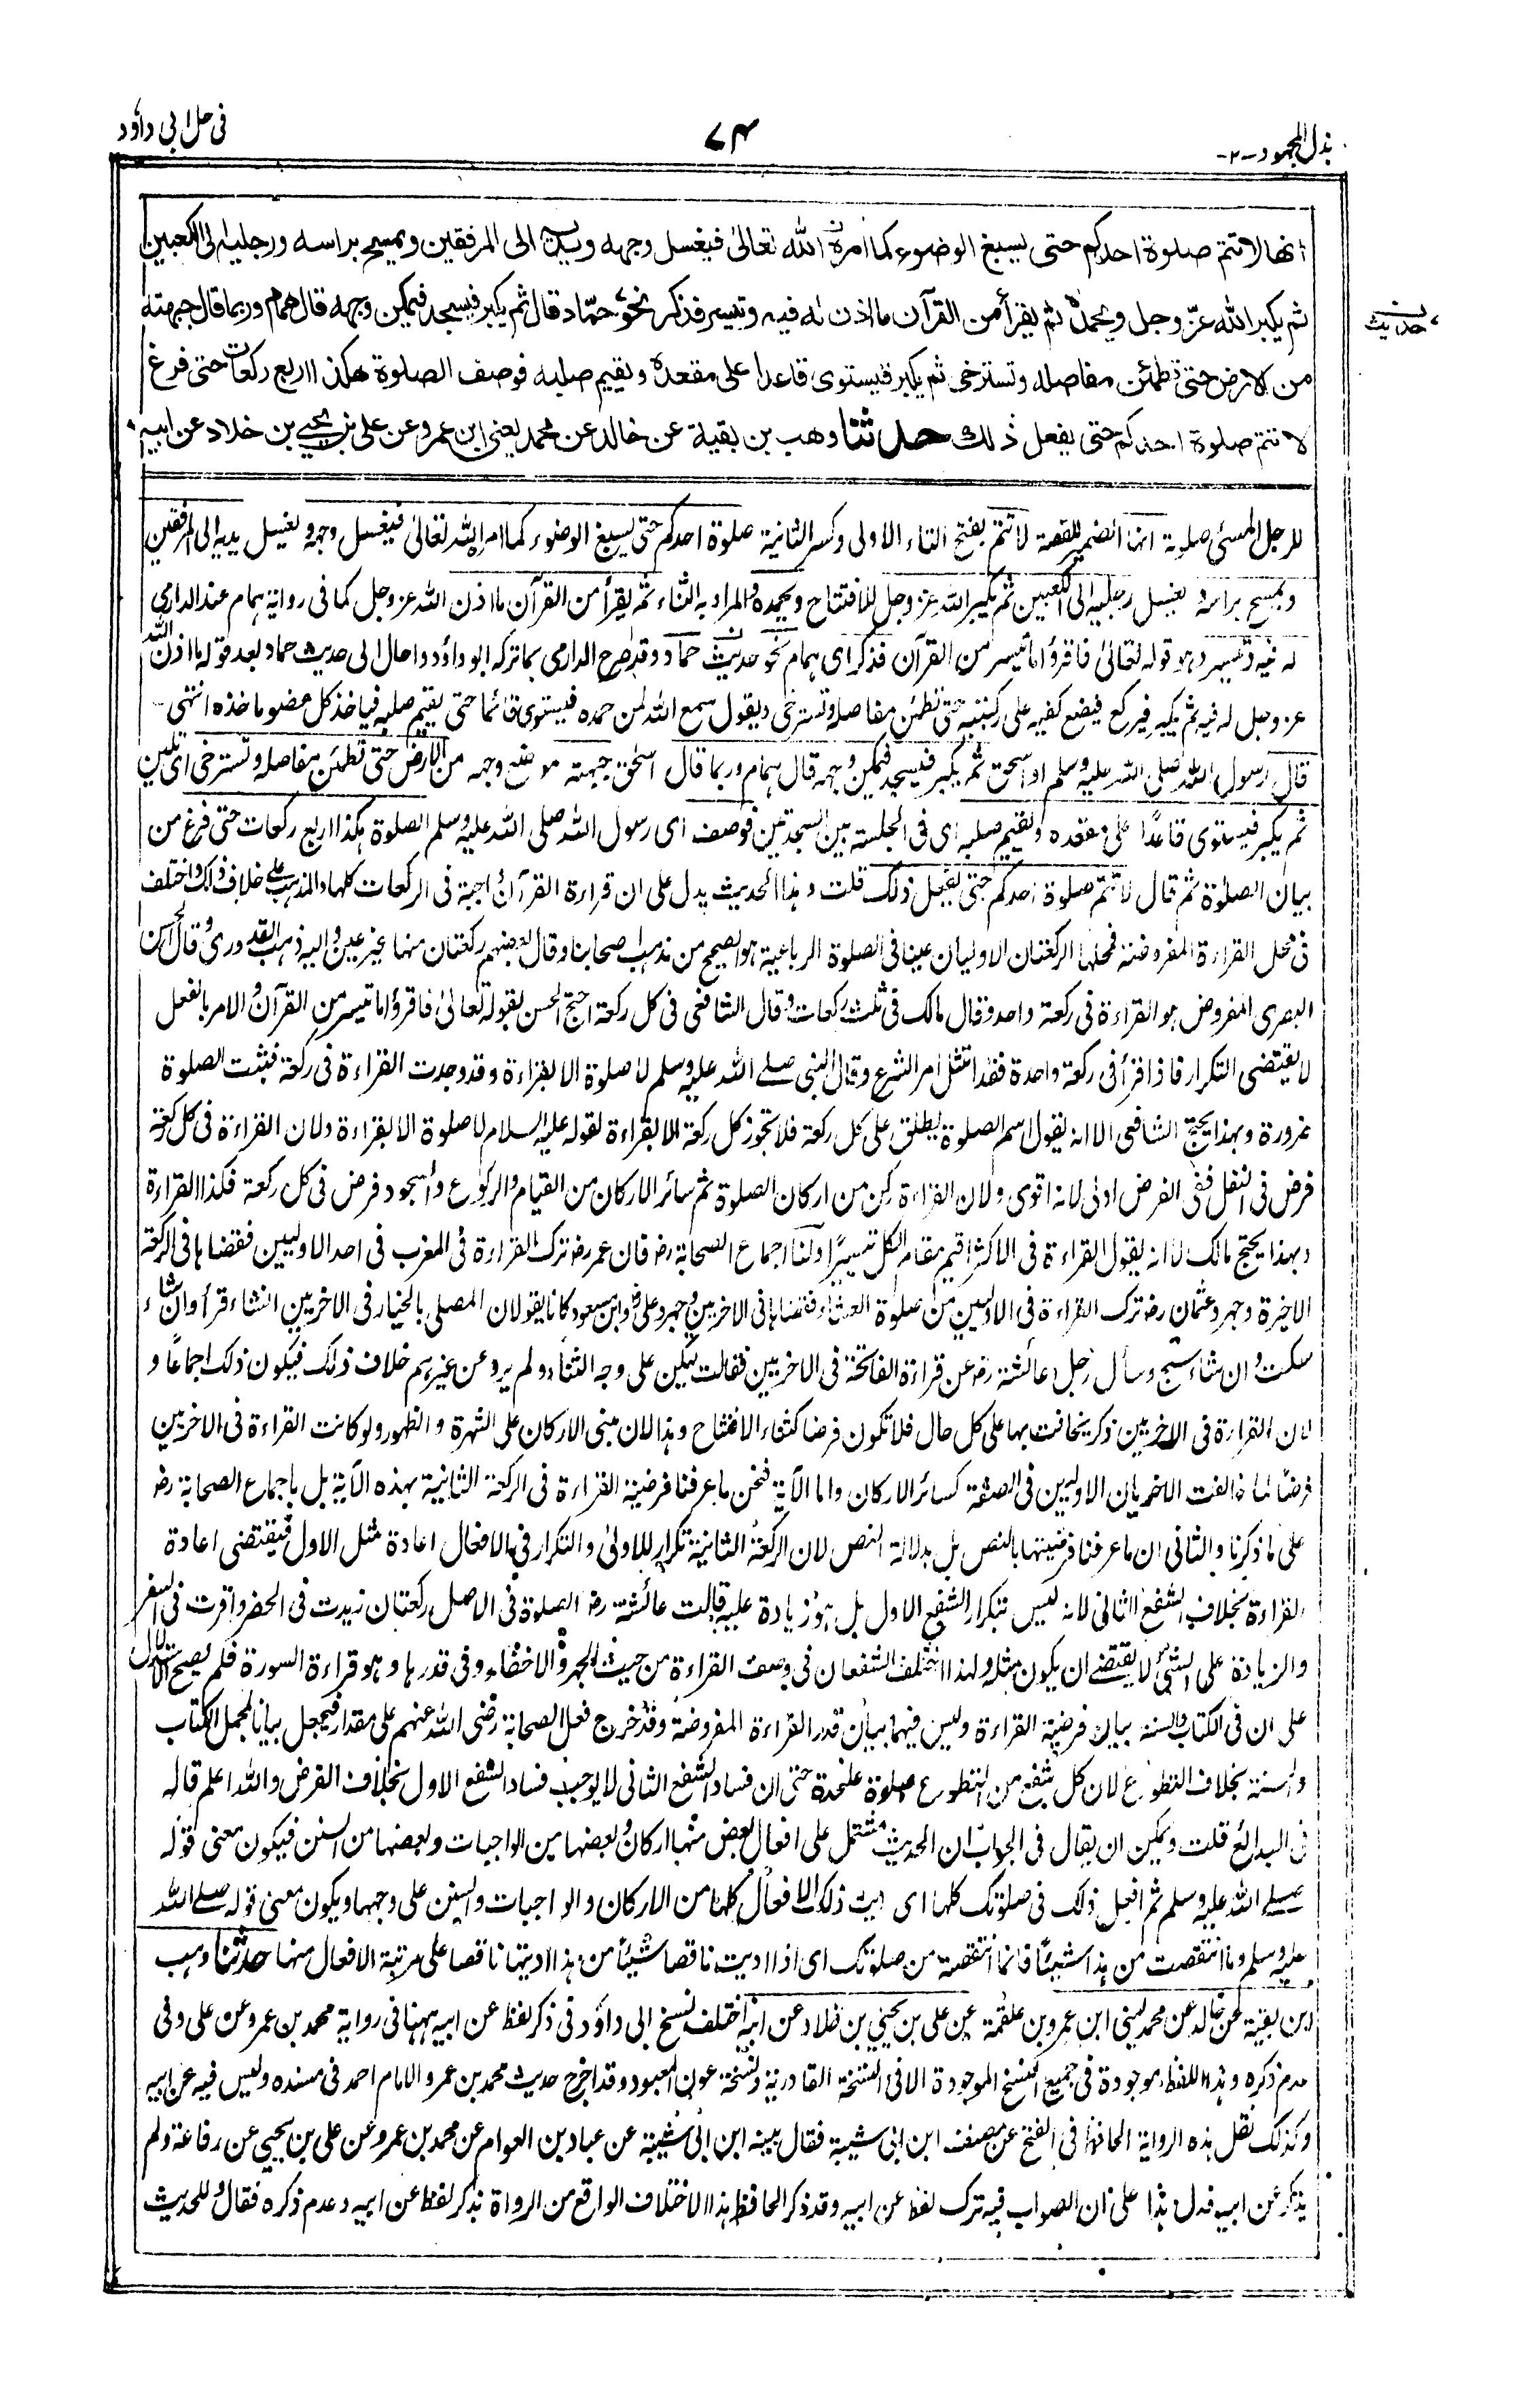 بذل المجهود -٢-
٧٤
في حل ابي داؤد
انها لا تتم صلوة احدكم حتى يسبغ الوضوء كما امره الله تعالى فيغسل وجهه ويديه الى المرفقين ويمسح براسه ورجليه الى الكعبين
ثم يكبر الله عزّ وجل ويحمده ثم يقرأ من القرآن ما اذن له فيه وتيسر فذكر نحو حمّاد قال ثم يكبر فيسجد فيمكن وجهه قال همام وربما قال جبهته
حديث
من الارض حتى تطمئن مفاصله وتسترخى ثم يكبر فيستوى قاعدا على مقعده ويقيم صلبه فوصف الصلوة هكذا اربع ركعات حتى فرغ
لا تتم صلوة احدكم حتى يفعل ذلك حدثنا وهب بن بقية عن خالد عن محمد يعنى ابن عمرو عن على بن يحيى بن خلاد عن ابيه
للرجل المسئ صلوته انها الضمير للقصة لا تتم بفتح التاء الاولى وكسر الثانية صلوة احدكم حتى يسبغ الوضوء كما امر الله تعالى فيغسل وجهه يغسل يديه الى المرفقين
ويمسح براسه يغسل رجليه الى الكعبين ثم يكبر الله عز وجل للافتتاح ويحمده والمراد به الثناء ثم يقرأ من القرآن ما اذن الله عز وجل كما فى رواية همام عند الدارمى
له فيه وتيسر وهو قوله تعالى فاقرؤا ما تيسر من القرآن فذكر اى همام نحو حديث حماد وقد صرح الدارمى بما تركه ابو داؤد واحال الى حديث حماد بعد قوله ما اذن الله
عز وجل له فيه ثم يكبر فيركع فيضع كفيه على ركبتيه حتى تطمئن مفاصله وتسترخى ويقول سمع الله لمن حمده فيستوى قائما حتى يقيم صلبه فياخذ كل عضو ماخذه انتهى
قال رسول الله صلى الله عليه وسلم او اسحق ثم يكبر فيسجد فيمكن وجهه قال همام وربما قال اسحق جبهته موضع وجهه من الارض حتى تطمئن مفاصله وتسترخى اى تلين
ثم يكبر فيستوى قاعدًا على مقعده ويقيم صلبه اى فى الجلسة بين السجدتين فوصف اى رسول الله صلى الله عليه وسلم الصلوة هكذا اربع ركعات حتى فرغ من
بيان الصلوة ثم قال لا تتم صلوة احدكم حتى يفعل ذلك قلت وهذا الحديث يدل على ان قراءة القرآن واجبة فى الركعات كلها والمذهب على خلاف ذلك واختلف
فى محل القراءة المفروضة فمحلها الركعتان الاوليان عينا فى الصلوة الرباعية هو الصحيح من مذهب اصحابنا وقال بعضهم ركعتان منها غير عين واليه ذهب القدورى وقال الحسن
البصرى المفروض هو القراءة فى ركعة واحدة وقال مالك فى ثلث ركعات وقال الشافعى فى كل ركعة احتج الحسن بقوله تعالى فاقرؤا ما تيسر من القرآن والامر بالفعل
لا يقتضى التكرار فاذا قرأ فى ركعة واحدة فقد امتثل امر الشرع وقال النبى صلے الله عليه وسلم لا صلوة الا بقراءة وقد وجدت القراءة فى ركعة فثبتت الصلوة
ضرورة وبهذا يحتج الشافعى الا انه يقول اسم الصلوة يطلق على كل ركعة فلا تجوز كل ركعة الا بقراءة لقوله عليه السلام لا صلوة الا بقراءة ولان القراءة فى كل ركعة
فرض فى النفل ففى الفرض اولى لانه اقوى ولان القراءة ركن من اركان الصلوة ثم سائر الاركان من القيام والركوع والسجود فرض فى كل ركعة فكذا القراءة
وبهذا يحتج مالك الا انه يقول القراءة فى الاكثر اقيم مقام الكل تيسيرًا ولنا اجماع الصحابة رض فان عمر رض ترك القراءة فى المغرب فى احد الاوليين فقضاها فى الركعة
الاخيرة وجهر وعثمان رض ترك القراءة فى الاوليين من صلوة العشاء فقضاها فى الاخريين وجهر وعلى وابن مسعود كانا يقولان المصلى بالخيار فى الاخريين انشاء قرأ وان شاء
سكت وان شاء سبح وسأل رجل عائشة رض عن قراءة الفاتحة فى الاخريين فقالت ليكن على وجه الثناء ولم يرو عن غيرهم خلاف ذلك فيكون ذلك اجماعًا و
لان القراءة فى الاخريين ذكر يخافت بها على كل حال فلا تكون فرضا كثناء الافتتاح وهذا لان مبنى الاركان على الشهرة والظهور ولو كانت القراءة فى الاخريين
فرضًا لما خالفت الاخريان الاوليين فى الصفة كسائر الاركان واما الآية فنحن ما عرفنا فرضية القراءة فى الركعة الثانية بهذه الآية بل باجماع الصحابة رض
على ما ذكرنا والثانى ان ما عرفنا فرضيتها بالنص بل بدلالة النص لان الركعة الثانية تكرار للاولى والتكرار فى الافعال اعادة مثل الاول فيقتضى اعادة
القراءة بخلاف الشفع الثانى لانه ليس بتكرار الشفع الاول بل هو زيادة عليه قالت عائشة رض الصلوة فى الاصل ركعتان زيدت فى الحضر واقرت فى السفر
والزيادة على الشئ لا يقتضے ان يكون مثله ولهذا اختلف الشفعان فى وصف القراءة من حيث الجهر والاخفاء وفى قدرها وهو قراءة السورة فلم يصح الاستدلال
على ان فى الكتاب والسنة بيان فرضية القراءة وليس فيهما بيان قدر القراءة المفروضة وقد خرج فعل الصحابة رضى الله عنهم على مقدار فيجعل بيانا لمجمل الكتاب
والسنة بخلاف التطوع لان كل شفع من التطوع صلوة علحدة حتى ان فساد الشفع الثانى لا يوجب فساد الشفع الاول بخلاف الفرض والله اعلم قاله
فى البدائع قلت ويمكن ان يقال فى الجواب ان الحديث مشتمل على افعال بعض منها اركان وبعضها من الواجبات وبعضها من السنن فيكون معنى قوله
صلے الله عليه وسلم ثم افعل ذلك فى صلوتك كلها اى ايت ذلك الافعال كلها من الاركان والواجبات والسنن على وجهها ويكون معنى قوله صلے الله
عليه وسلم وما انتقصت من هذا شيئًا فانما انتقصته من صلوتك اى اذا اديت ناقصا شيئًا من هذا اديتها ناقصا على مرتبة الافعال منها حدثنا وهب
ابن بقية عن خالد عن محمد يعنى ابن عمرو بن علقمة عن على بن يحيى بن خلاد عن ابيه اختلف نسخ ابى داؤد فى ذكر لفظ عن ابيه ههنا فى رواية محمد بن عمرو عن على وفى
عدم ذكره وهذا اللفظ موجودة فى جميع النسخ الموجودة الا فى النسخة القادرية ونسخة عون المعبود وقد اخرج حديث محمد بن عمرو الامام احمد فى مسنده وليس فيه عن ابيه
وكذلك نقل هذه الرواية الحافظ فى الفتح عن مصنف ابن ابى شيبة فقال بينه ابن ابى شيبة عن عباد بن العوام عن محمد بن عمرو عن على بن يحيى عن رفاعة ولم
يذكر عن ابيه فدل هذا على ان الصواب فيه ترك لفظ عن ابيه وقد ذكر الحافظ هذا الاختلاف الواقع من الرواة بذكر لفظ عن ابيه وعدم ذكره فقال وللحديث